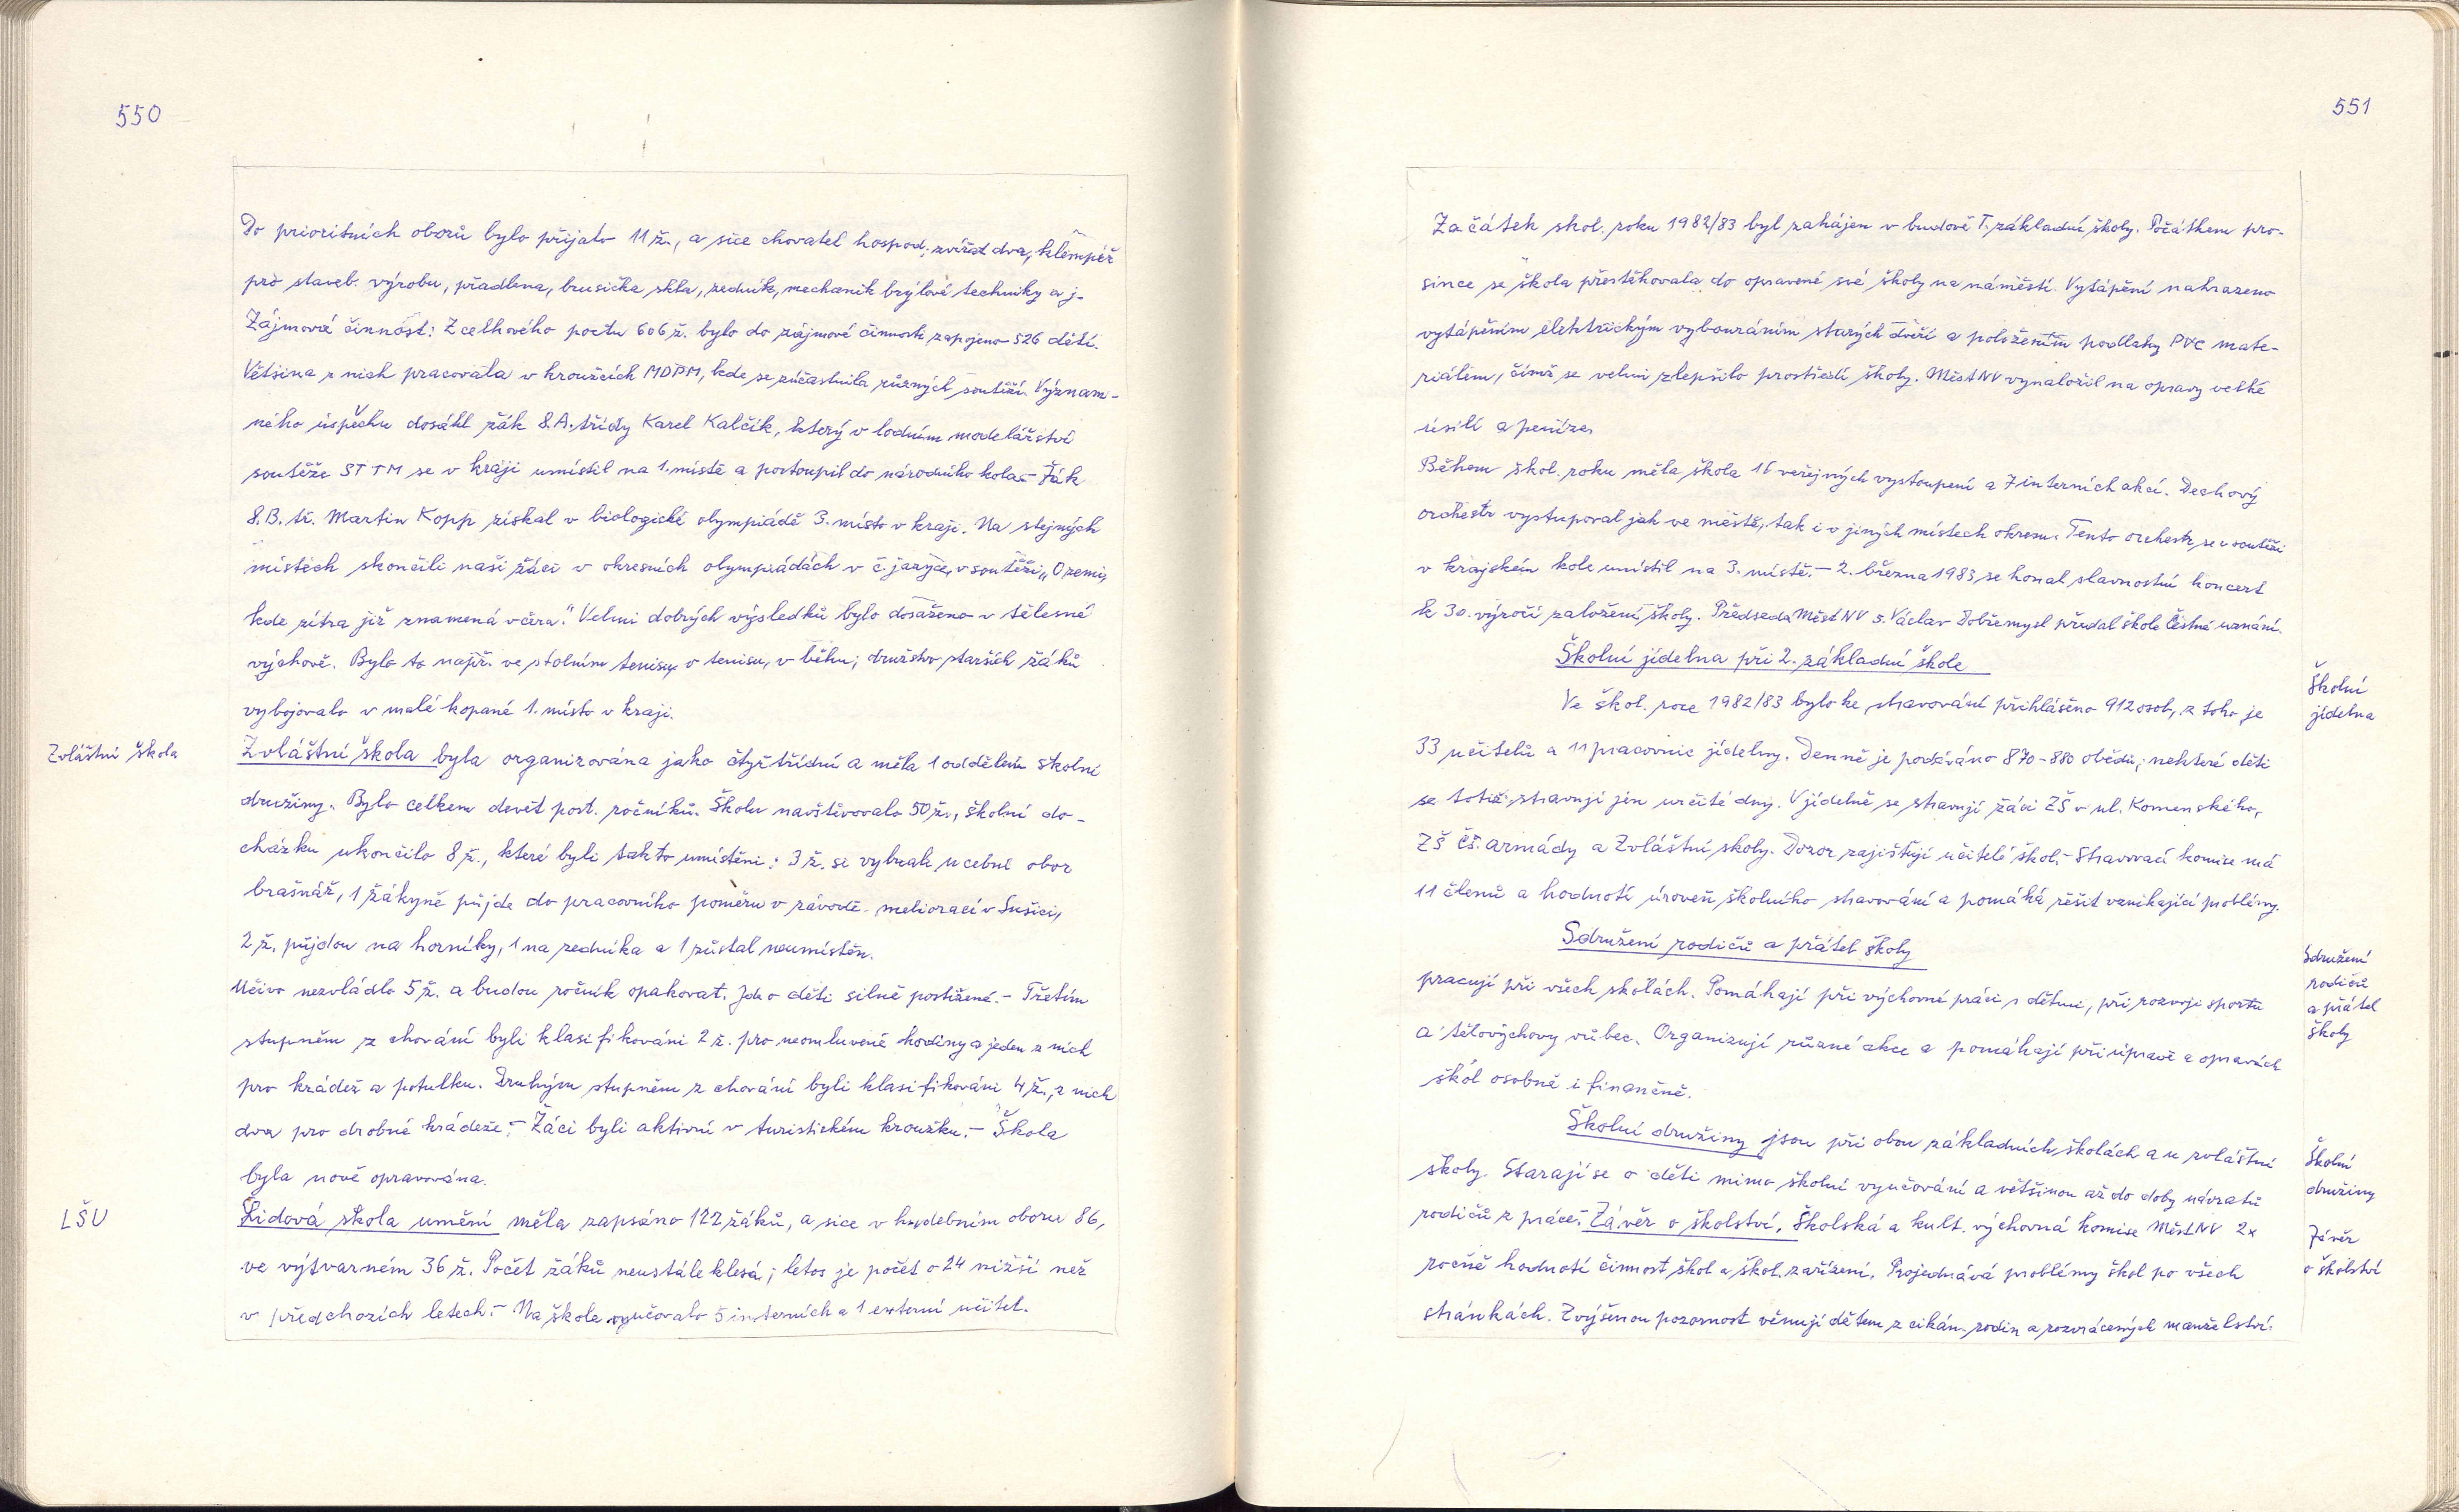 550
Do prioritních oborů bylo přijato 11 ž., a sice chovatel hospod. zvířat dva, klempíř
pro staveb. výrobu, přadlena, brusička skla, zedník, mechanik brýlové techniky a j.
Zájmová činnost: Z celkového počtu 606 ž. bylo do zájmové činnosti zapojeno 526 dětí.
Většina z nich pracovala v kroužcích MDPM, kde se zúčastnila různých soutěží. Význam-
ného úspěchu dosáhl žák 8.A. třídy Karel Kalčík, který v lodním modelářství
soutěže STTM se v kraji umístil na 1. místě a postoupil do národního kola. – Žák
8.B. tř. Martin Kopp získal v biologické olympiádě 3. místo v kraji. Na stejných
místech skončili naši žáci v okresních olympiádách v č. jazyce, v soutěži „O zemi,
kde zítra již znamená včera." Velmi dobrých výsledků bylo dosaženo v tělesné
výchově. Bylo to např. ve stolním tenisu, v tenisu, v běhu; družstvo starších žáků
vybojovalo v malé kopané 1. místo v kraji.
Zvláštní škola
Zvláštní škola byla organizována jako čtyřtřídní a měla 1 oddělení školní
družiny. Bylo celkem devět post. ročníků. Školu navštěvovalo 50 ž., školní do-
cházku ukončilo 8 ž., které byli takto umístěni: 3 ž. si vybrali učební obor
brašnář, 1 žákyně půjde do pracovního poměru v závodě meliorací v Sušici,
2 ž. půjdou na horníky, 1 na zedníka a 1 zůstal neumístěn.
Učivo nezvládlo 5 ž. a budou ročník opakovat. Jde o děti silně postižené. – Třetím
stupněm z chování byli klasifikováni 2 ž. pro neomluvené hodiny a jeden z nich
pro krádež a potulku. Druhým stupněm z chování byli klasifikováni 4 ž., z nich
dva pro drobné krádeže. – Žáci byli aktivní v turistickém kroužku. – Škola
byla nově opravována.
LŠU
Lidová škola umění měla zapsáno 122 žáků, a sice v hudebním oboru 86,
ve výtvarném 36 ž. Počet žáků neustále klesá; letos je počet o 24 nižší než
v předchozích letech. – Na škole vyučovalo 5 interních a 1 externí učitel.
551
Začátek škol. roku 1982/83 byl zahájen v budově I. základní školy. Počátkem pro-
since se škola přestěhovala do opravené své školy na náměstí. Vytápění nahrazeno
vytápěním elektrickým vybouráním starých dveří a položením podlahy PVC mate-
riálem, čímž se velmi zlepšilo prostředí školy. MěstNV vynaložil na opravy velké
úsilí a peníze.
Během škol. roku měla škola 16 veřejných vystoupení a 7 interních akcí. Dechový
orchestr vystupoval jak ve městě, tak i v jiných místech okresu. Tento orchestr se v soutěži
v krajském kole umístil na 3. místě. – 2. března 1983 se konal slavnostní koncert
k 30. výročí založení školy. Předseda MěstNV s. Václav Dobřemysl předal škole čestné uznání.
Školní jídelna při 2. základní škole
Školní
jídelna
Ve škol. roce 1982/83 bylo ke stravování přihlášeno 912 osob, z toho je
33 učitelů a 11 pracovnic jídelny. Denně je podáváno 870-880 obědů; některé děti
se totiž stravují jen určité dny. V jídelně se stravují žáci ZŠ v ul. Komenského,
ZŠ Čs. armády a Zvláštní školy. Dozor zajišťují učitelé škol. – Stravovací komise má
11 členů a hodnotí úroveň školního stravování a pomáhá řešit vznikající problémy.
Sdružení rodičů a přátel školy
Sdružení
rodičů
a přátel
školy
pracují při všech školách. Pomáhají při výchovné práci s dětmi, při rozvoji sportu
a tělovýchovy vůbec. Organizují různé akce a pomáhají při úpravě a opravách
škol osobně i finančně.
Školní družiny jsou při obou základních školách a u zvláštní
Školní
družiny
školy. Starají se o děti mimo školní vyučování a většinou až do doby návratu
rodičů z práce. – Závěr o školství. Školská a kult. výchovná komise MěstNV 2x
Závěr
o školství
ročně hodnotí činnost škol a škol. zařízení. Projednává problémy škol po všech
stránkách. Zvýšenou pozornost věnují dětem z cikán. rodin a rozvrácených manželství.